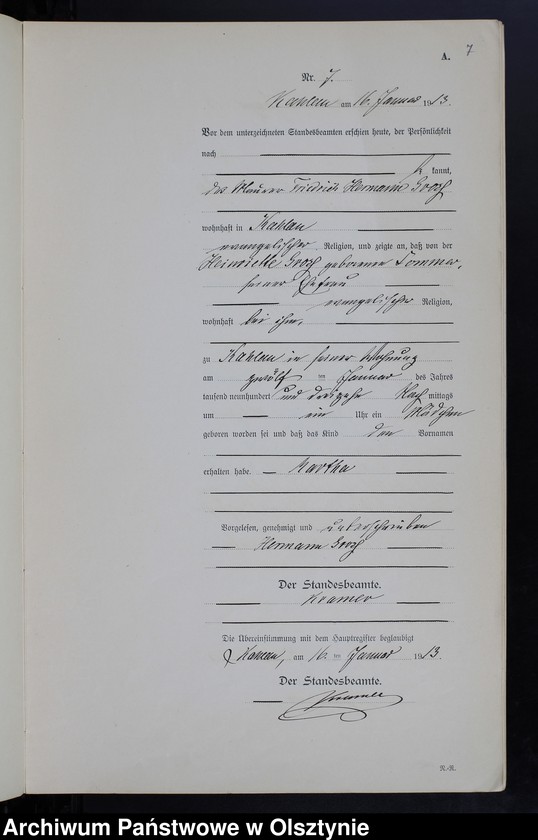 7
A.
Nr. 7.
Kahlau am 16. Januar 1913.
Vor dem unterzeichneten Standesbeamten erschien heute, der Persönlichkeit
nach
kannt,
der Maurer Friedrich Hermann
wohnhaft in Kahlau
evangelischer Religion, und zeigte an, daß von der
Heinriette geborenen Sommer,
seiner Ehefrau
evangelischer Religion,
wohnhaft bei ihm,
zu Kahlau in seiner Wohnung
am zwölf ten Januar des Jahres
tausend neunhundert und dreizehn Nach mittags
um ein Uhr ein Mädchen
geboren worden sei und daß das Kind den Vornamen
Martha
erhalten habe.
Vorgelesen, genehmigt und unterschrieben
Hermann
Der Standesbeamte.
Kramer
Die Übereinstimmung mit dem Hauptregister beglaubigt
Kahlau, am 16. ten Januar 1913.
Der Standesbeamte.
Kramer
N.-R.
Archiwum Państwowe w Olsztynie